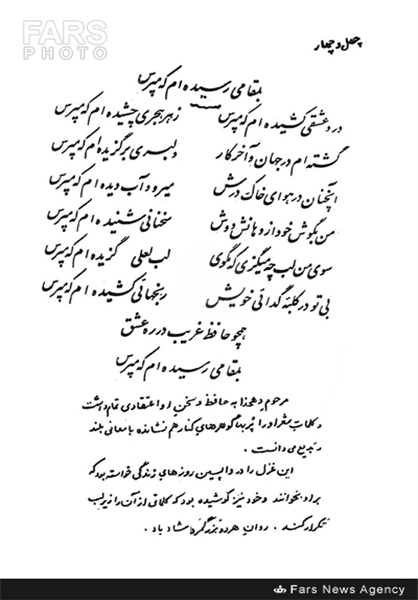 FARS
PHOTO
چهل و چهار
بمقامی رسیده ام که مپرس
درد عشقی کشیده ام که مپرس    زهر هجری چشیده ام که مپرس
گشته ام در جهان و آخر کار    دلبری برگزیده ام که مپرس
آنچنان در هوای خاک درش    میرود آب دیده ام که مپرس
من بگوش خود از دهانش دوش    سخنانی شنیده ام که مپرس
سوی من لب چه میگزی که مگوی    لب لعلی گزیده ام که مپرس
بی تو در کلبه گدائی خویش    رنجهائی کشیده ام که مپرس
همچو حافظ غریب در ره عشق
بمقامی رسیده ام که مپرس
مرحوم دهخدا به حافظ و سخن او اعتقادی تمام داشت
و کلمات شعر او را پربها گوهرهای کنار هم نشانده با معانی بلند
و بدیع می دانست.
این غزل را در واپسین روزهای زندگی خواسته بود که
براو بخوانند و خود نیز کوشیده بود که از آن را زیر لب
تکرار کند. روان هر دو بزرگمرد شاد باد.
Fars News Agency